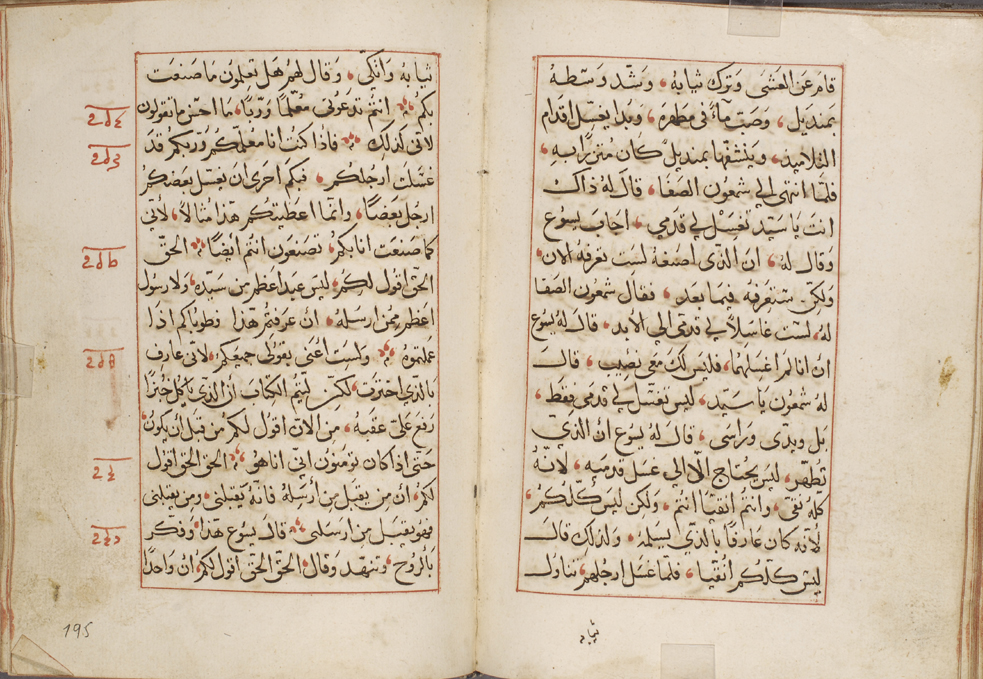 قام عن العشى وترك ثيابه وشد وسطه
بمنديل وصب ماء في مطهره وبدا يغسل اقدام
التلاميد وينشفها بمنديل كان متزرا به
فلما انتهى الي شمعون الصفا قال له ذاك
انت يا سيد تغسل لي قدمي اجاب يسوع
وقال له ان الذي اصنعه لست تعرفه الان
ولكن ستعرفه فيما بعد فقال شمعون الصفا
له لست غاسلا لي قدمي الي الابد قال له يسوع
ان انا لم اغسلهما فليس لك معي نصيب قال
له شمعون يا سيد ليس تغسل لي قدمي فقط
بل ويدى وراسى قال له يسوع ان الذي
تطهر ليس يحتاج الا الي غسل قدميه لانه
كله نقي وانتم انقيا انتم ولكن ليس كلكم
لانه كان عارفا بالذي يسلمه ولذلك قال
ليس كلكم انقيا فلما غسل ارجلهم تناول
ثيابه
ثيابه واتكى وقال لهم هل تعلمون ما صنعت
بكم انتم تدعوني معلما وربا ما احسن ما تقولون
لاني كذلك فاذا كنت انا معلمكم وربكم قد
غسلت ارجلكم فبكم احرى ان يغسل بعضكم
ارجل بعضا وانما اعطيتكم هذا مثالا لاني
كما صنعت انا بكم تصنعون انتم ايضا الحق
الحق اقول لكم ليس عبد اعظم من سيده ولا رسول
اعظم ممن ارسله ان عرفتم هذا فطوباكم اذا
عملتموه ولست اعني بقولى جميعكم لاني عارف
بالذي اخترت لكن ليتم الكتاب ان الذي ياكل خبزا
رفع على عقبه من الان اقول لكم من قبل ان يكون
حتى اذا كان تومنون اني انا هو الحق الحق اقول
لكم ان من يقبل من ارسله فانه يقبلني ومن يقبلني
فهو يقبل من ارسلني قال يسوع هذا وفكر
بالروح وتنهد وقال الحق الحق اقول لكم ان واحدا
195